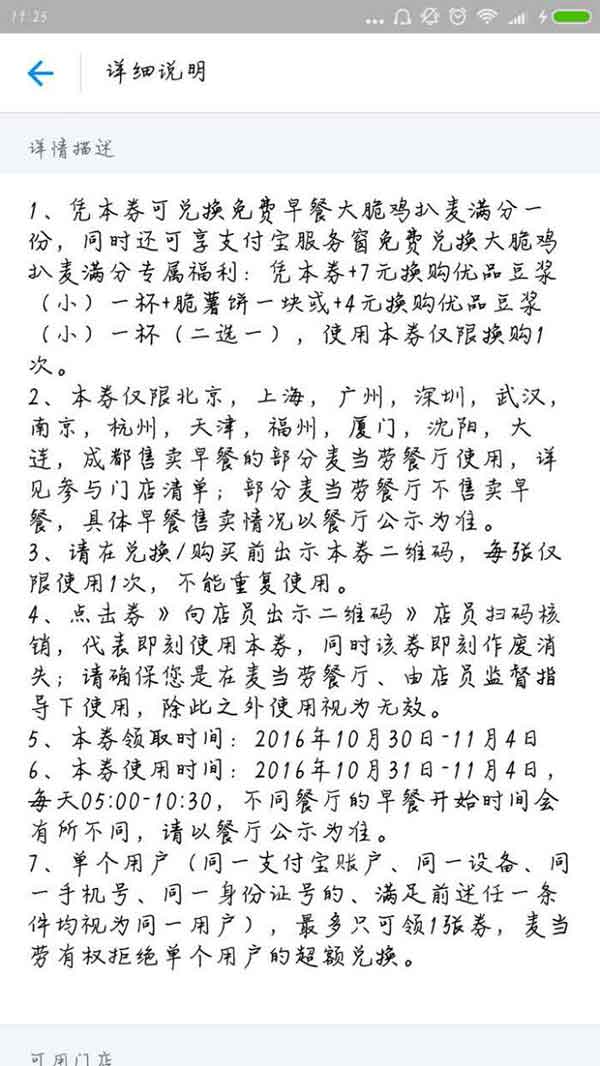 11:25
详细说明
详情描述
1、凭本券可兑换免费早餐大脆鸡扒麦满分一
份，同时还可享支付宝服务窗免费兑换大脆鸡
扒麦满分专属福利：凭本券+7元换购优品豆浆
（小）一杯+脆薯饼一块或+4元换购优品豆浆
（小）一杯（二选一），使用本券仅限换购1
次。
2、本券仅限北京，上海，广州，深圳，武汉，
南京，杭州，天津，福州，厦门，沈阳，大
连，成都售卖早餐的部分麦当劳餐厅使用，详
见参与门店清单；部分麦当劳餐厅不售卖早
餐，具体早餐售卖情况以餐厅公示为准。
3、请在兑换/购买前出示本券二维码，每张仅
限使用1次，不能重复使用。
4、点击券》向店员出示二维码》店员扫码核
销，代表即刻使用本券，同时该券即刻作废消
失；请确保您是在麦当劳餐厅、由店员监督指
导下使用，除此之外使用视为无效。
5、本券领取时间：2016年10月30日-11月4日
6、本券使用时间：2016年10月31日-11月4日，
每天05:00-10:30，不同餐厅的早餐开始时间会
有所不同，请以餐厅公示为准。
7、单个用户（同一支付宝账户、同一设备、同
一手机号、同一身份证号的、满足前述任一条
件均视为同一用户），最多只可领1张券，麦当
劳有权拒绝单个用户的超额兑换。
可用门店